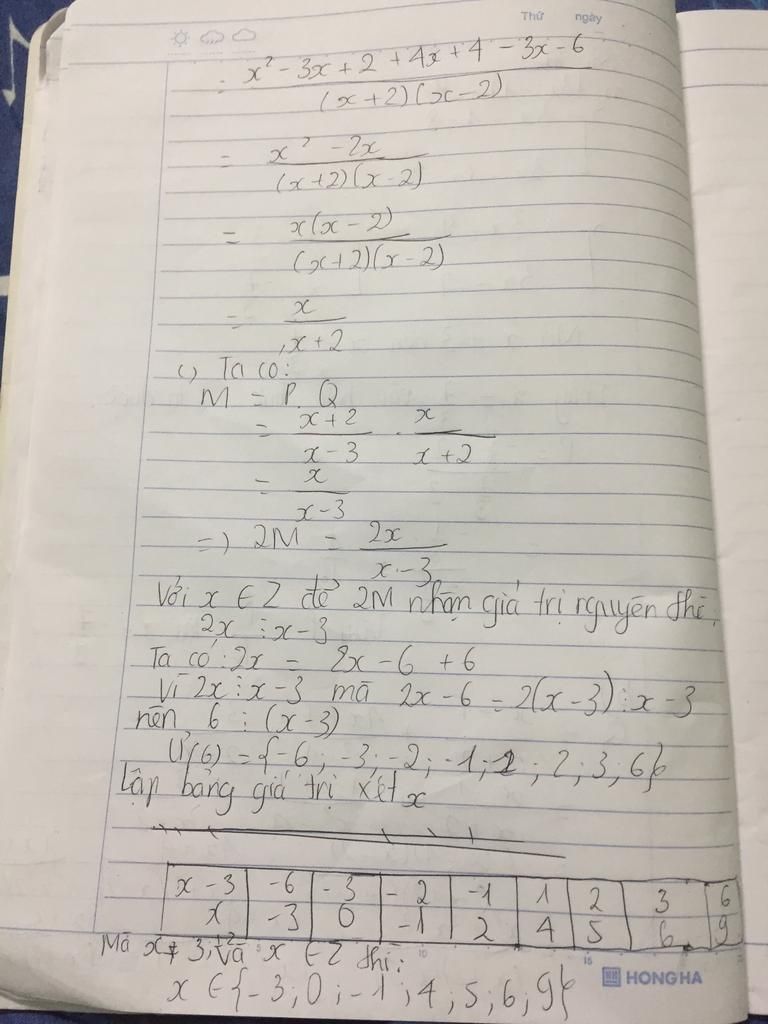 Thứ ngày
= x² - 3x + 2 + 4x + 4 - 3x - 6
(x+2)(x-2)
= x² - 2x
(x+2)(x-2)
= x(x-2)
(x+2)(x-2)
= x
x+2
c) Ta có:
M = P. Q
= x+2 . x
x-3 x+2
= x
x-3
=) 2M = 2x
x-3
Với x ∈ Z để 2M nhận giá trị nguyên thì:
2x ⋮ x-3
Ta có: 2x = 2x - 6 + 6
Vì 2x ⋮ x-3 mà 2x-6 = 2(x-3) ⋮ x-3
nên 6 ⋮ (x-3)
Ư(6) = {-6; -3; -2; -1; 1; 2; 3; 6}
Lập bảng giá trị xét x
x-3 -6 -3 -2 -1 1 2 3 6
x -3 0 -1 2 4 5 6 9
Mà x ≠ 3, ±2 và x ∈ Z thì:
HONG HA
x ∈ {-3; 0; -1; 4; 5; 6; 9}